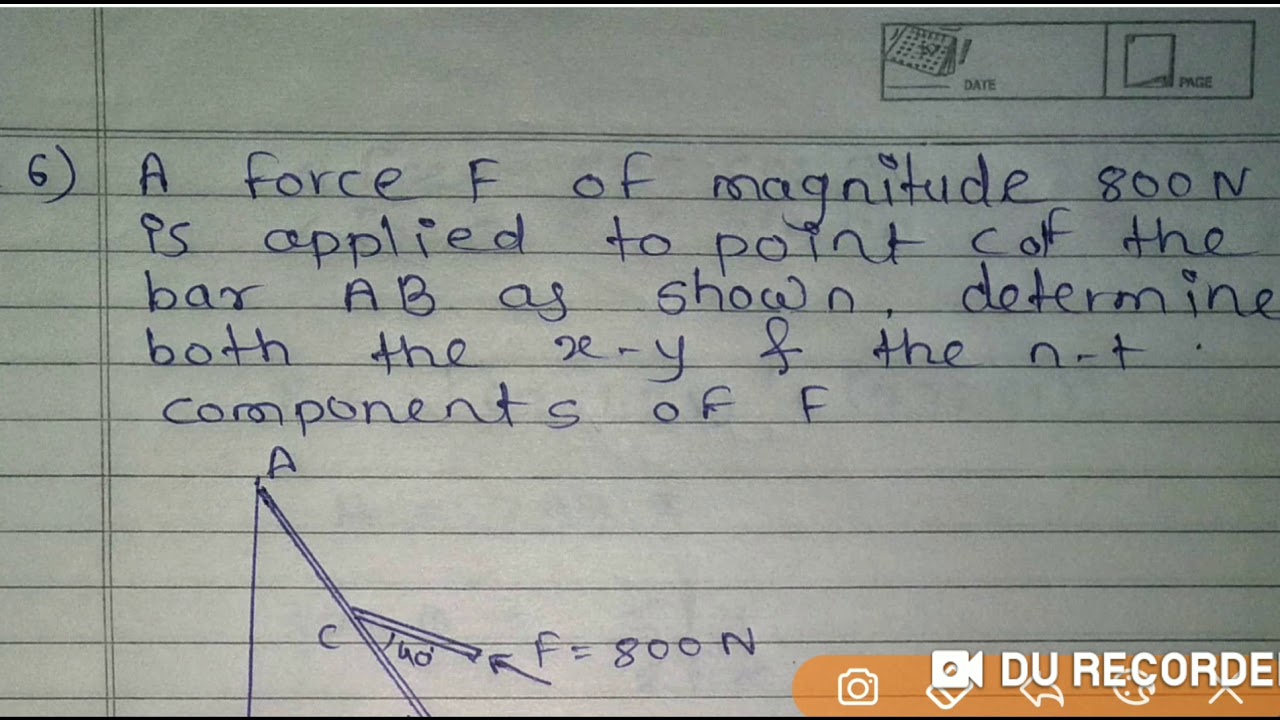 DATE
PAGE
6) A force F of magnitude 800 N
is applied to point C of the
bar AB as shown, determine
both the x-y & the n-t
components of F
A
C
40°
F = 800 N
DU RECORDE